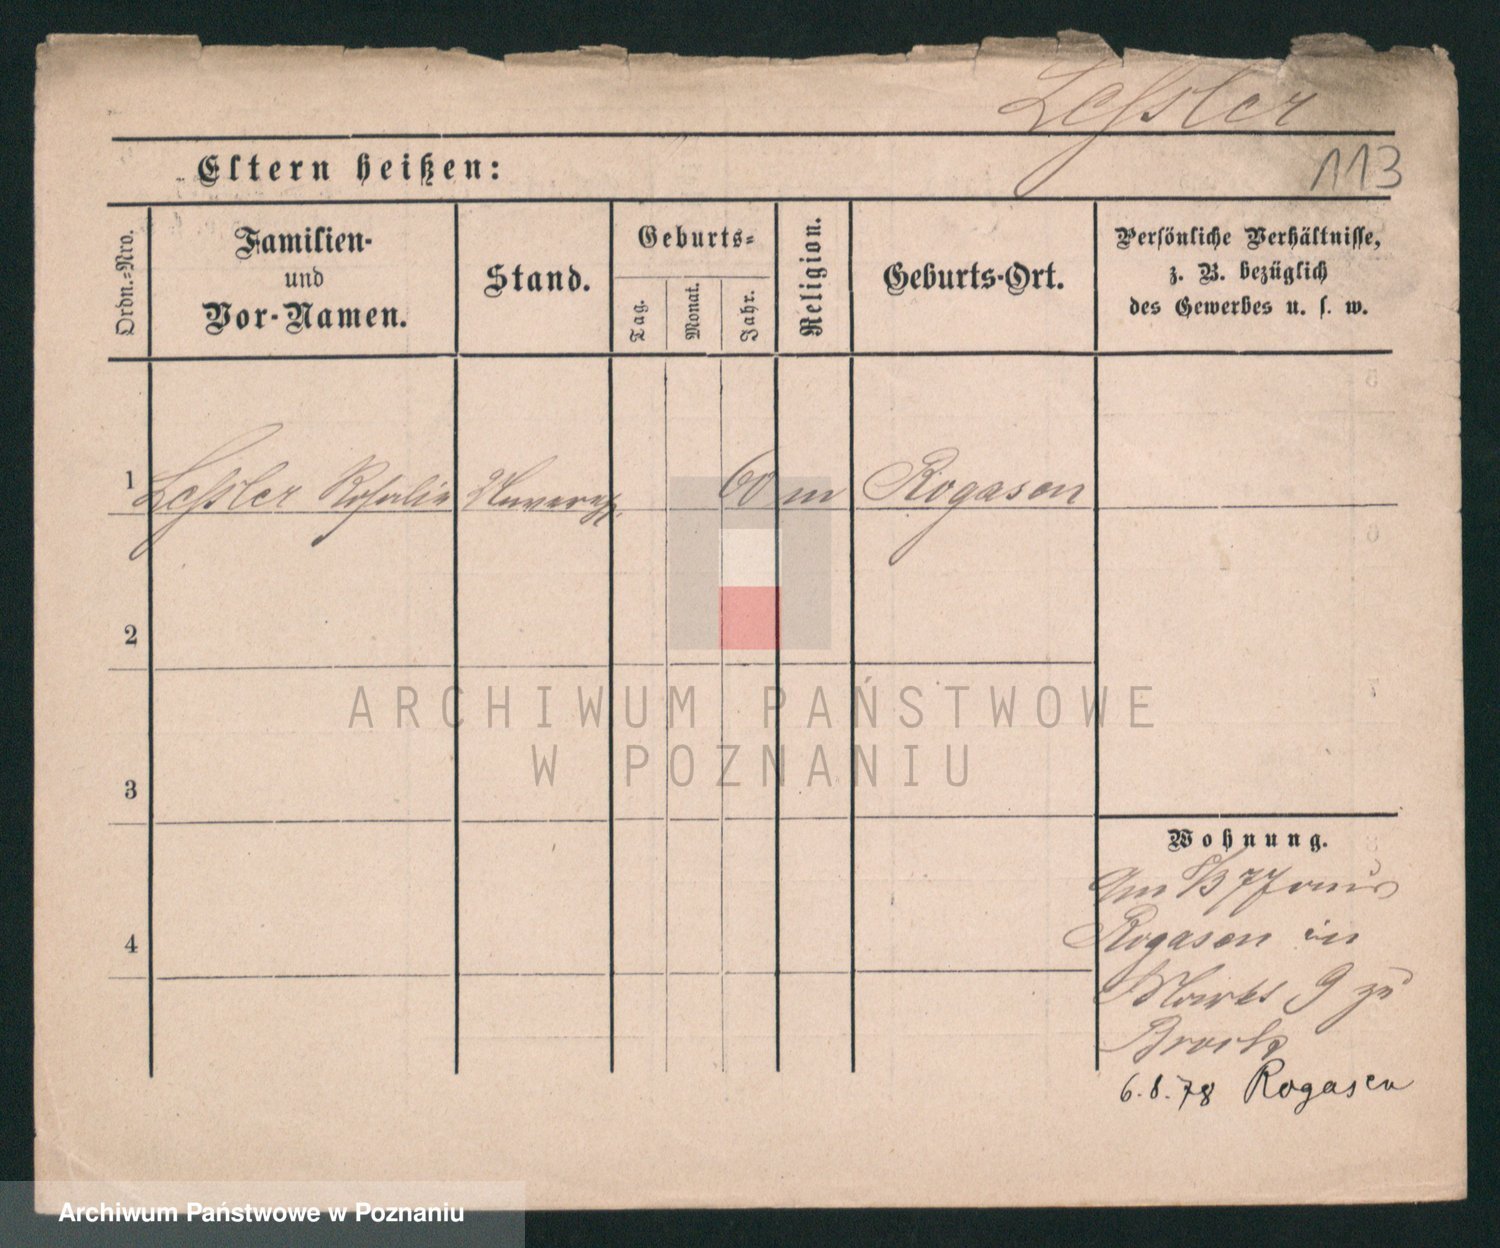 Leßler
113
Eltern heißen:
Ordn.-Nro.
Familien-
und
Vor-Namen.
Stand.
Geburts-
Tag.
Monat.
Jahr.
Religion.
Geburts-Ort.
Persönliche Verhältnisse,
z. B. bezüglich
des Gewerbes u. s. w.
1 Leßler Rosalie Unvereh. 60 m Rogasen
2
3
4
Wohnung.
Am 8/3 77 aus
Rogasen in
Markt 9 zu
6.8.78 Rogasen
ARCHIWUM PAŃSTWOWE
W POZNANIU
Archiwum Państwowe w Poznaniu